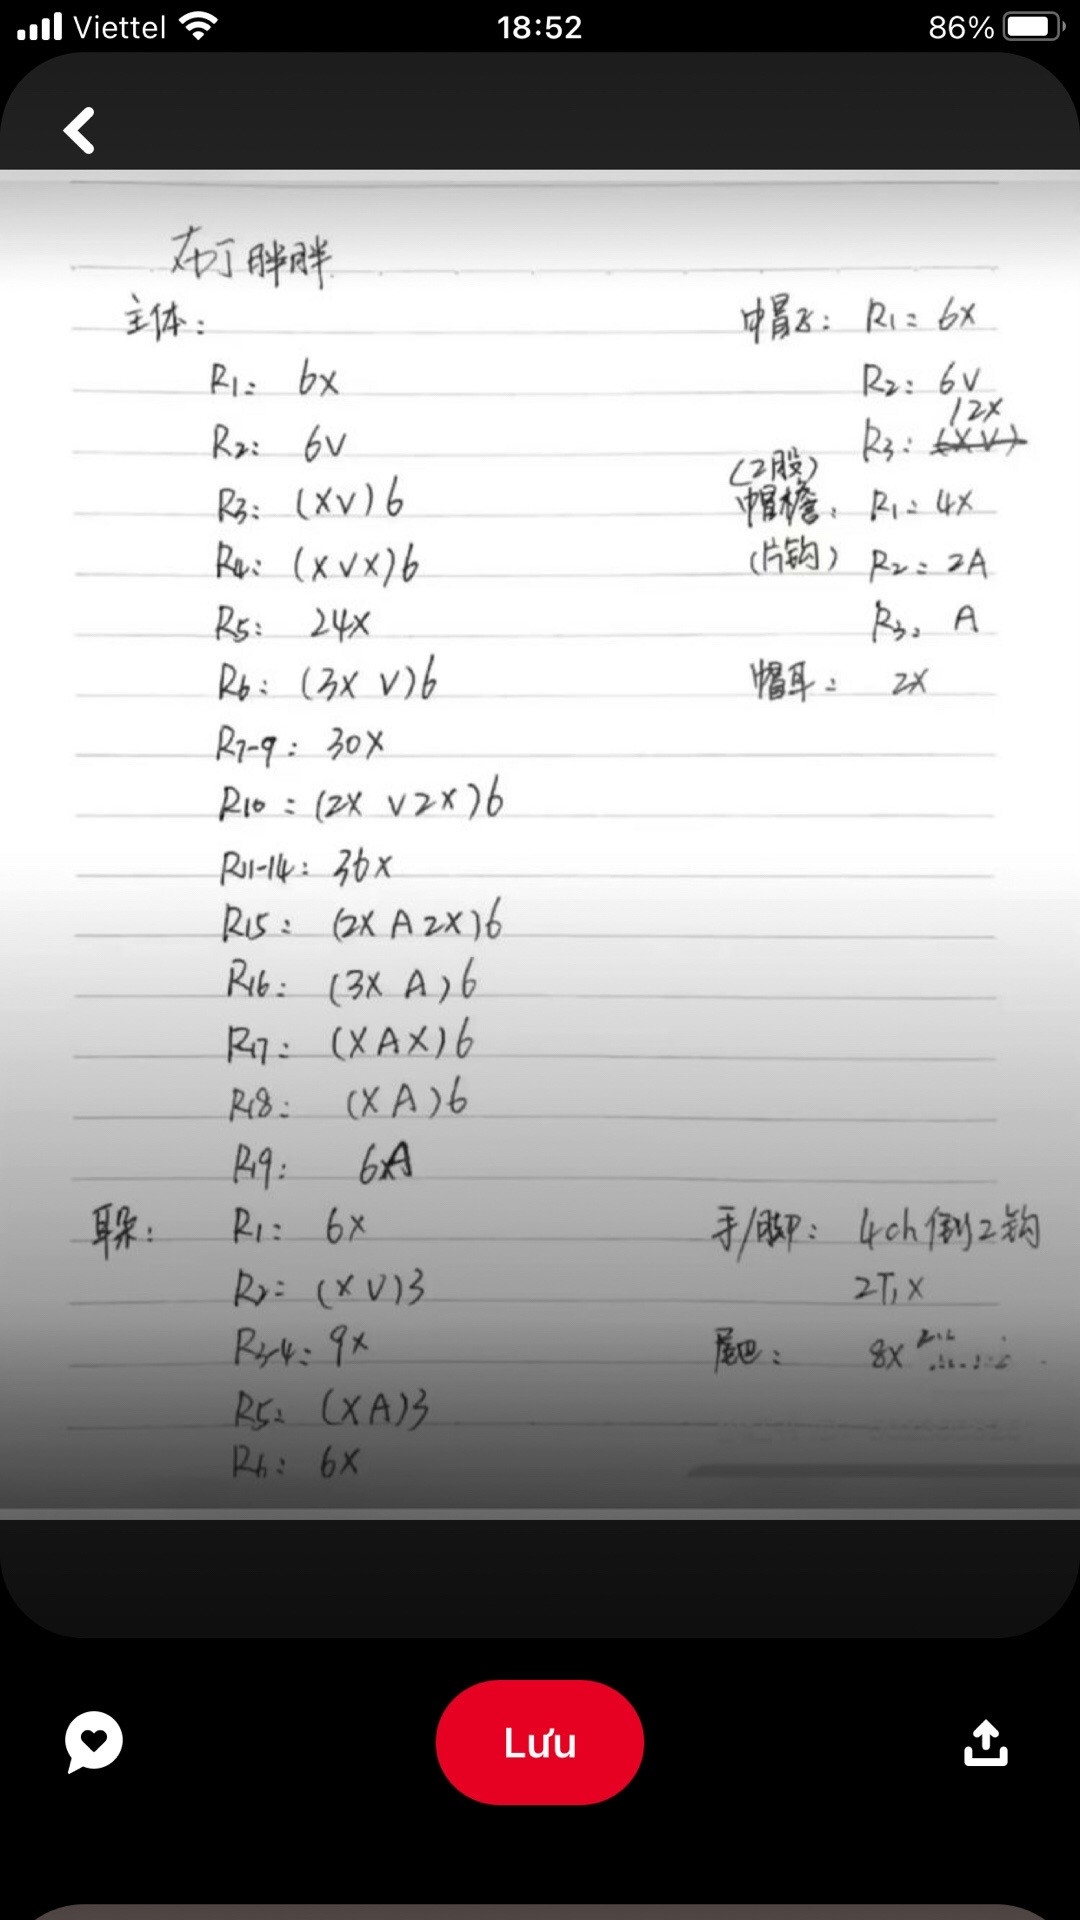 Viettel
18:52
86%
布丁胖胖
主体：
R1: 6X
R2: 6V
R3: (XV)6
R4: (XVX)6
R5: 24X
R6: (3X V)6
R7-9: 30X
R10: (2X V 2X)6
R11-14: 36X
R15: (2X A 2X)6
R16: (3X A)6
R17: (XAX)6
R18: (XA)6
R19: 6A
耳朵: R1: 6X
R2: (XV)3
R3-4: 9X
R5: (XA)3
R6: 6X
帽子: R1: 6X
R2: 6V
12X
R3: (XV)
(2股)
帽檐: R1: 4X
(片钩) R2: 2A
R3: A
帽耳: 2X
手/脚: 4ch 倒2钩
2T, X
尾巴: 8X
Lưu